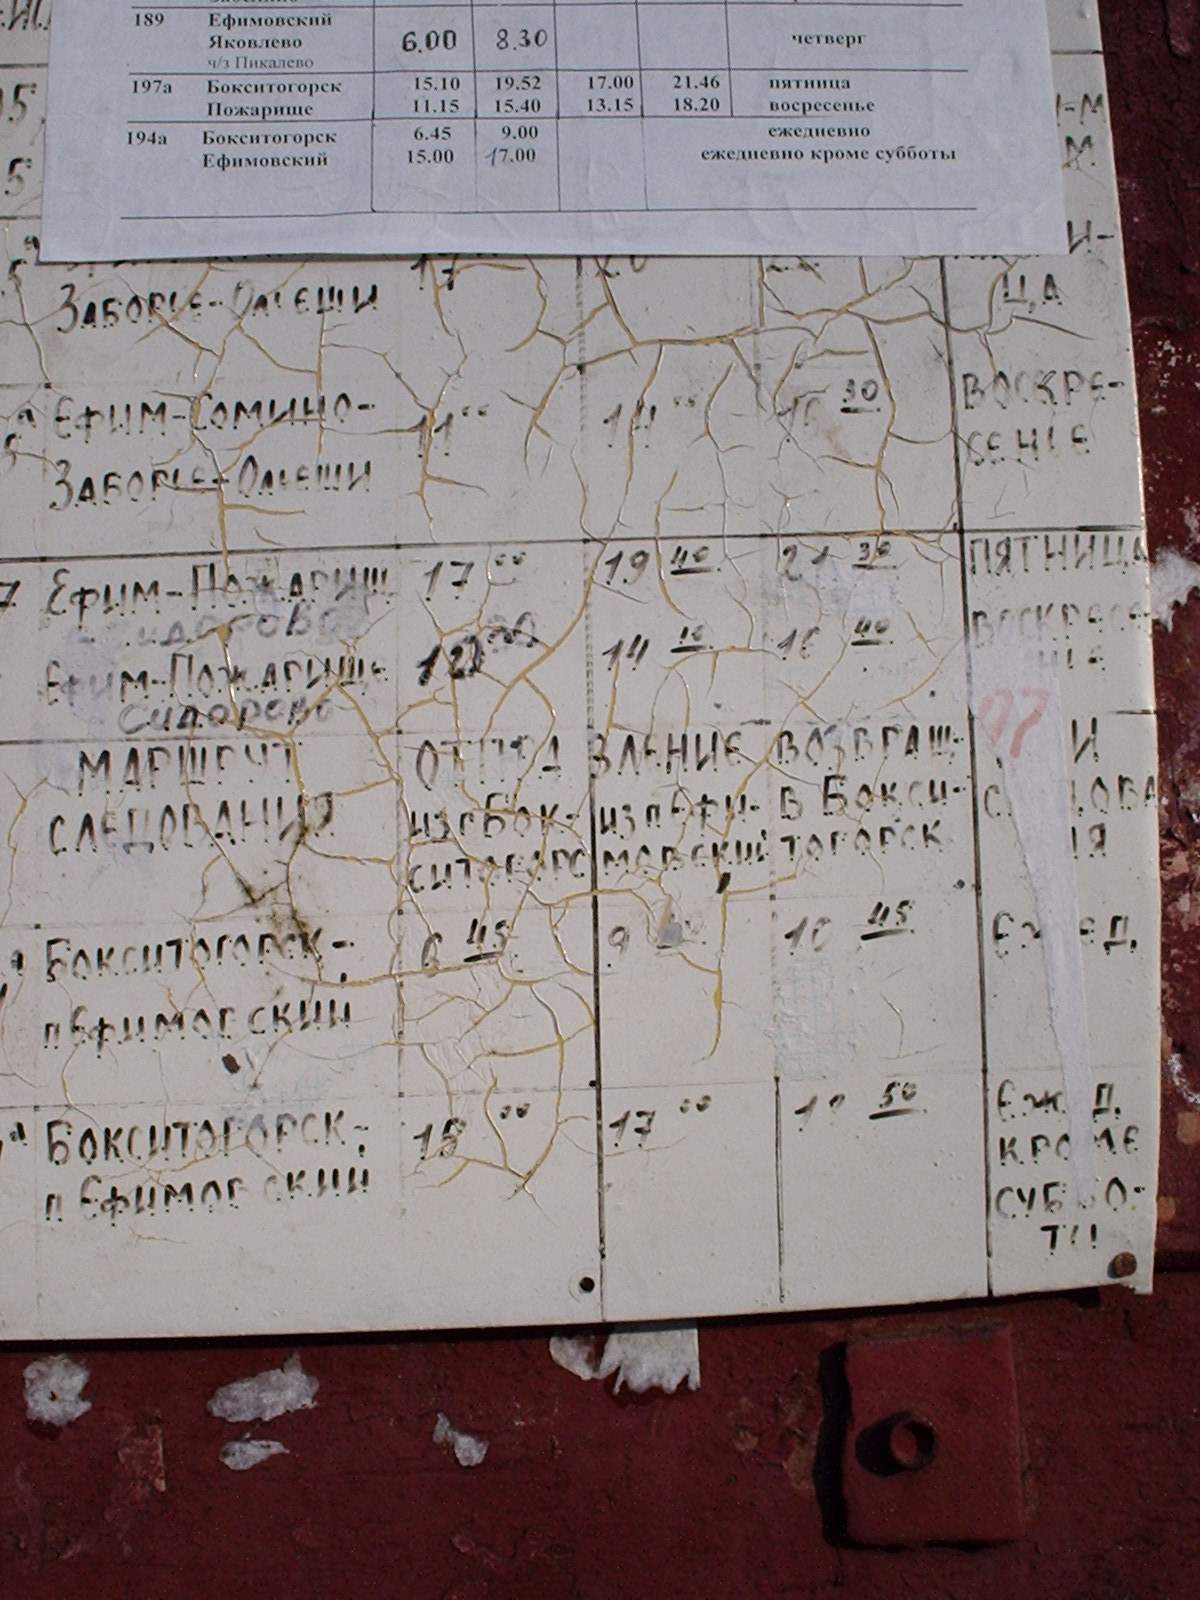 189 Ефимовский
Яковлево 6.00 8.30 четверг
ч/з Пикалево
197а Бокситогорск 15.10 19.52 17.00 21.46 пятница
Пожарище 11.15 15.40 13.15 18.20 восресенье
194а Бокситогорск 6.45 9.00 ежедневно
Ефимовский 15.00 17.00 ежедневно кроме субботы
ЗАБОРЬЕ-ОЛЕШИ ЦА
ЕФИМ-СОМИНО- 11 00 14 00 16 30 ВОСКРЕ-
ЗАБОРЬЕ-ОЛЕШИ СЕНЬЕ
7 ЕФИМ-ПОЖАРИЩ 17 00 19 40 21 30 ПЯТНИЦА
СИДОРОВО ВОСКРЕСЕ-
ЕФИМ-ПОЖАРИЩЕ 12 00 14 10 16 40 НЬЕ
СИДОРОВО
МАРШРУТ ОТПРАВЛЕНИЕ ВОЗВРАЩ- И
СЛЕДОВАНИЯ ИЗ Г БОК- ИЗ П ЕФИ- В БОКСИ-
СИТОГОРС МОВСКИЙ ТОГОРСК
БОКСИТОГОРСК- 6 45 9 10 45 ЕЖЕД.
П ЕФИМОВСКИЙ
БОКСИТОГОРСК- 15 00 17 00 50 ЕЖ Д.
П ЕФИМОВСКИЙ КРОМЕ
СУББО-
ТЫ